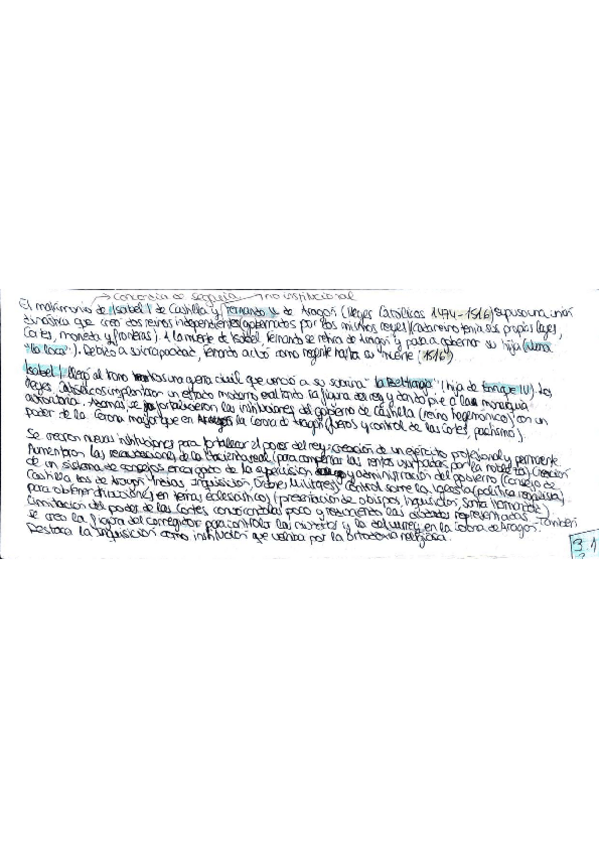 → Concordia de Segovia → no institucional
El matrimonio de Isabel I de Castilla y Fernando V de Aragón (Reyes Católicos 1474-1516) supuso una unión
dinástica que creó dos reinos independientes gobernados por los mismos reyes (cada reino tenía sus propias leyes,
Cortes, moneda y fronteras). A la muerte de Isabel, Fernando se retira de Aragón y pasa a gobernar su hija Juana
"la loca". Debido a su incapacidad, Fernando actuó como regente hasta su muerte (1516)
Isabel I llegó al trono tras una guerra civil que venció a su sobrina "la Beltraneja" (hija de Enrique IV). Los
Reyes Católicos implantaron un estado moderno exaltando la figura del rey y dando pie a la monarquía
autoritaria. Además, se fortalecieron las instituciones del gobierno de Castilla (reino hegemónico) con un
poder de la Corona mayor que en la Corona de Aragón (fueros y control de las Cortes, pactismo).
Se crearon nuevas instituciones para fortalecer el poder del rey: creación de un ejército profesional y permanente
Aumentaron las recaudaciones de la Hacienda real (para compensar las rentas usurpadas por la nobleza) Creación
de un sistema de consejos encargado de la supervisión y administración del gobierno (Consejo de
Castilla, Aragón, Inquisición, Órdenes Militares) Control sobre la Iglesia (política religiosa)
para obtener en temas eclesiásticos (presentación de obispos, inquisidor, Santa Hermandad)
Limitación del poder de las Cortes convocándolas poco y reduciendo las ciudades representadas.
Se creó la figura del corregidor para controlar los municipios y la del virrey en la Corona de Aragón. También
destaca la Inquisición como institución que velaba por la ortodoxia religiosa.
3.1